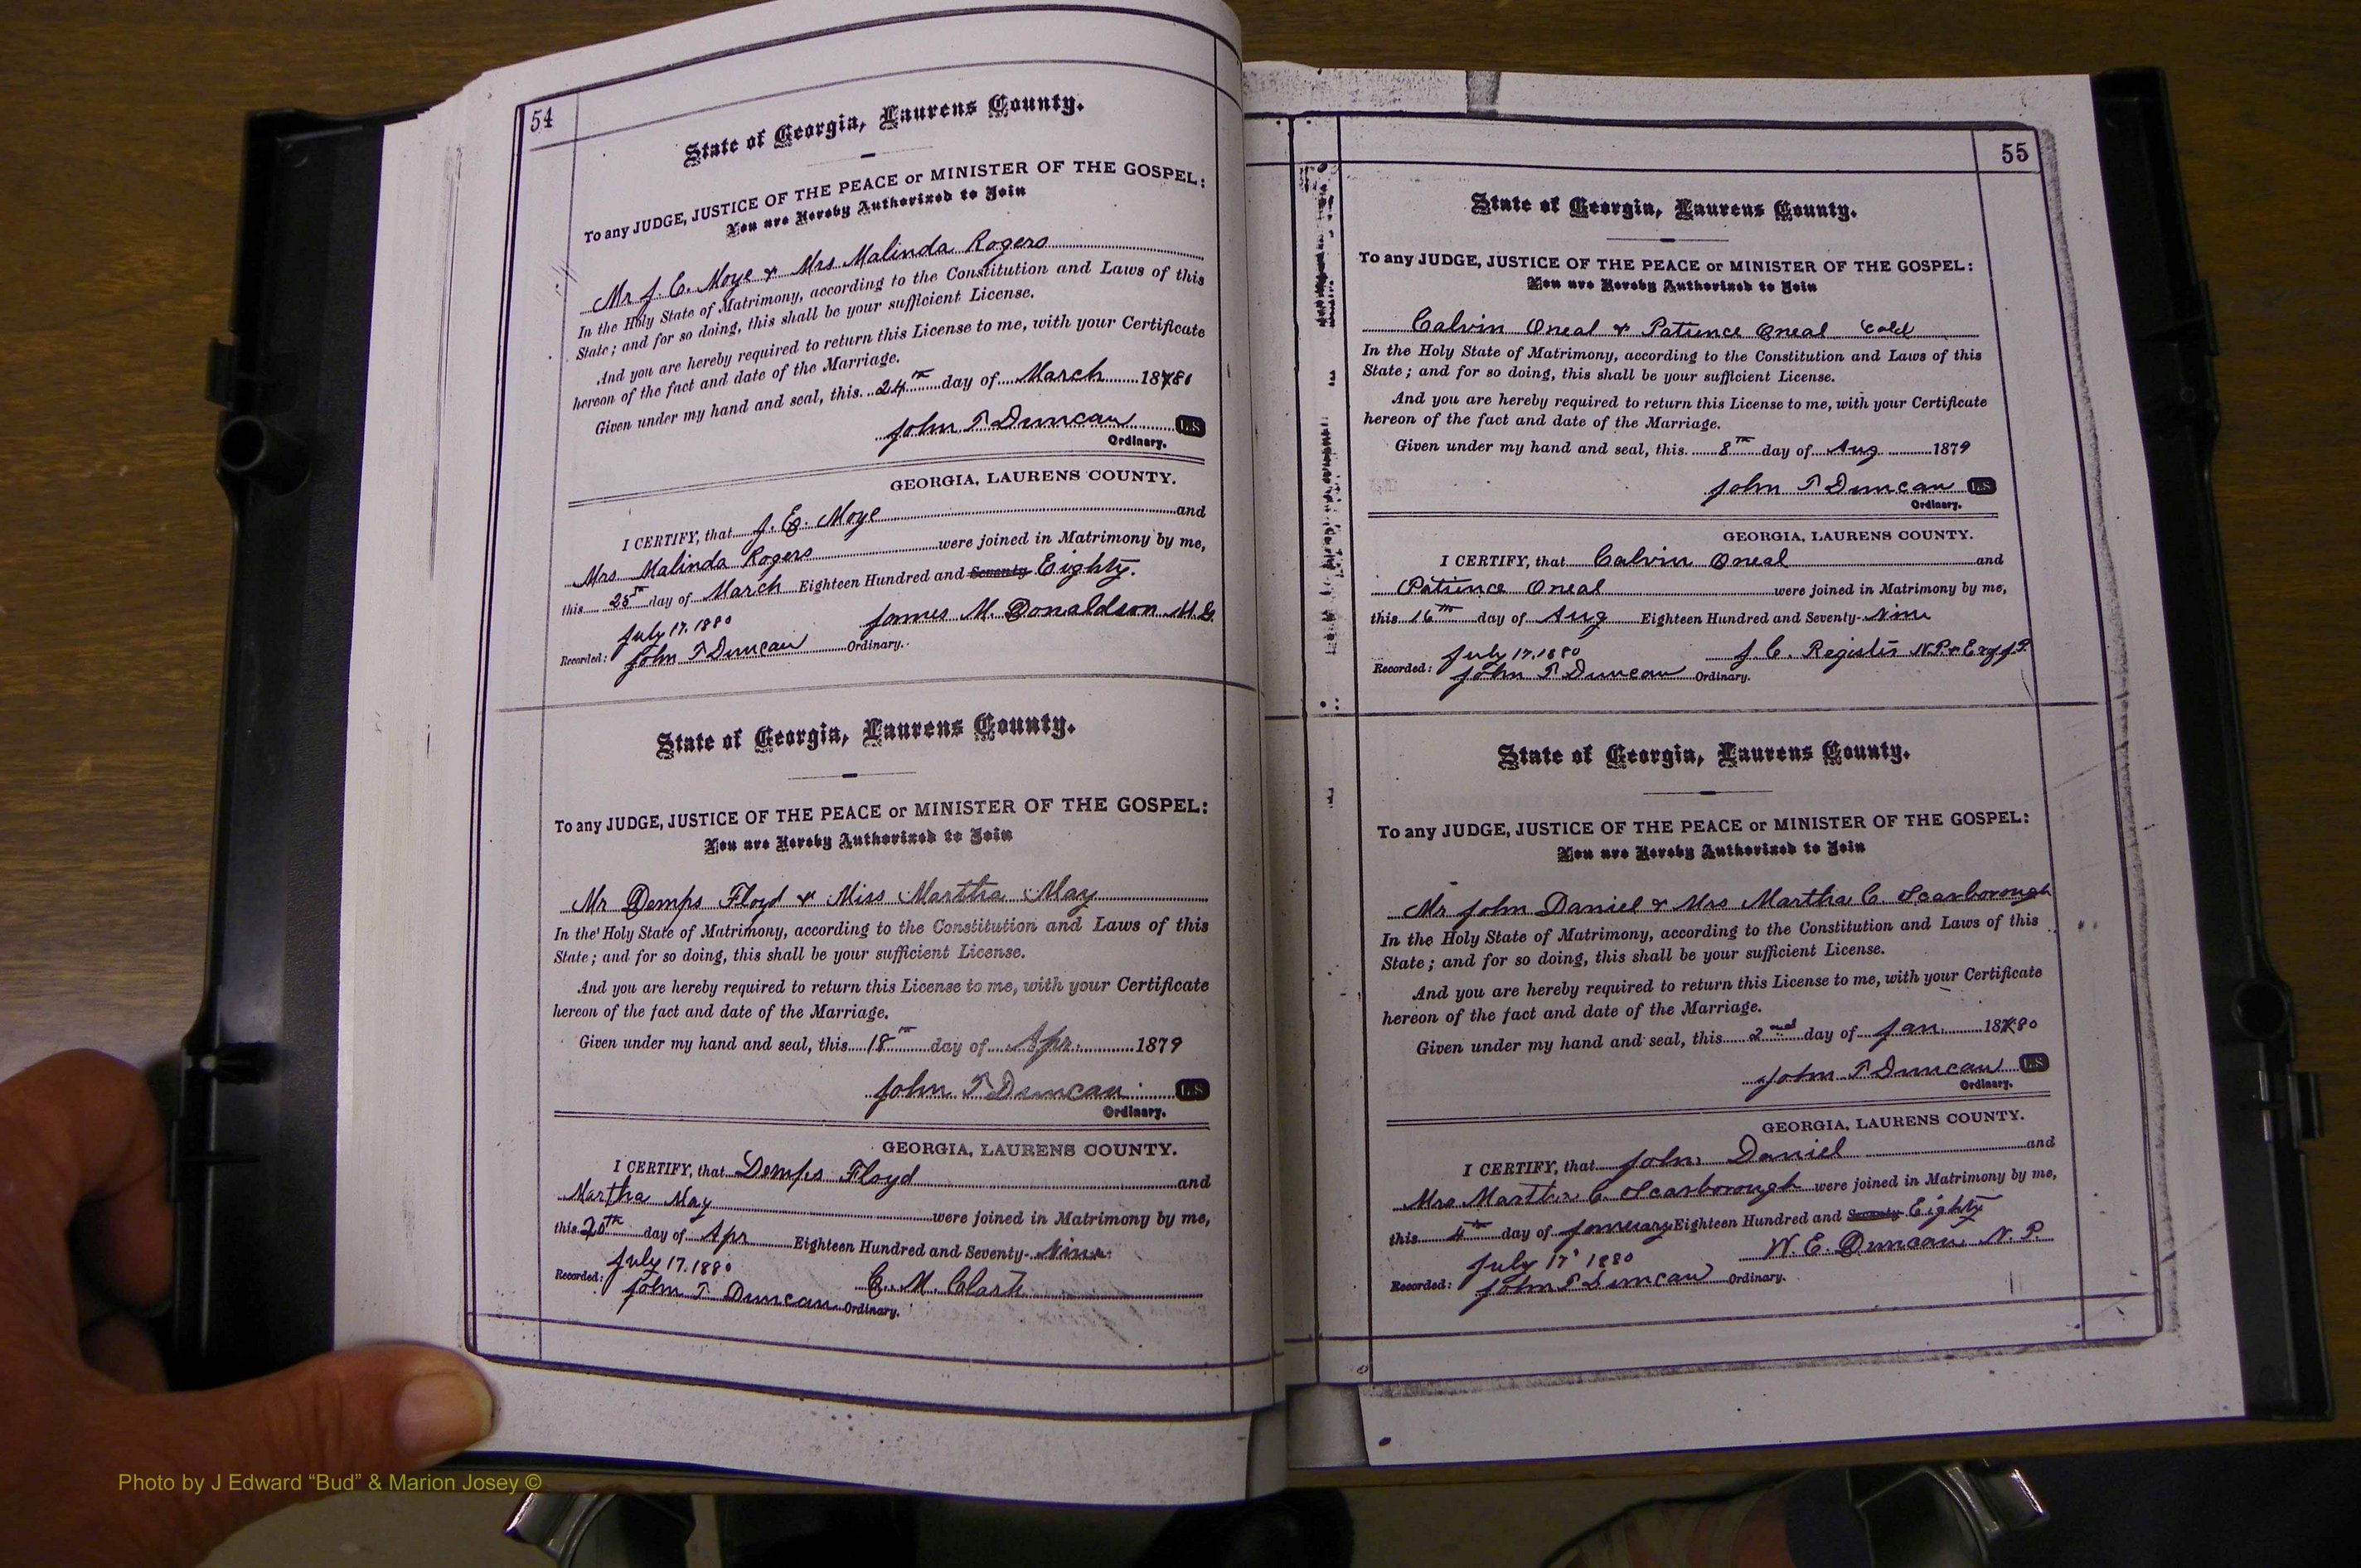 54
State of Georgia, Laurens County.
To any JUDGE, JUSTICE OF THE PEACE or MINISTER OF THE GOSPEL:
You are Hereby Authorized to Join
Mr J. C. Moye & Mrs Malinda Rogers
In the Holy State of Matrimony, according to the Constitution and Laws of this
State; and for so doing, this shall be your sufficient License.
And you are hereby required to return this License to me, with your Certificate
hereon of the fact and date of the Marriage.
Given under my hand and seal, this 24th day of March 1880
John T Duncan L.S
Ordinary.
GEORGIA, LAURENS COUNTY.
I CERTIFY, that J. E. Moye and
Mrs Malinda Rogers were joined in Matrimony by me,
this 25th day of March Eighteen Hundred and Seventy Eighty.
July 17. 1880 James M. Donaldson M.G.
Recorded: John T Duncan Ordinary.
State of Georgia, Laurens County.
To any JUDGE, JUSTICE OF THE PEACE or MINISTER OF THE GOSPEL:
You are Hereby Authorized to Join
Mr Demps Floyd & Miss Martha May
In the Holy State of Matrimony, according to the Constitution and Laws of this
State; and for so doing, this shall be your sufficient License.
And you are hereby required to return this License to me, with your Certificate
hereon of the fact and date of the Marriage.
Given under my hand and seal, this 18th day of Apr. 1879
John T Duncan L.S
Ordinary.
GEORGIA, LAURENS COUNTY.
I CERTIFY, that Demps Floyd and
Martha May were joined in Matrimony by me,
this 20th day of Apr Eighteen Hundred and Seventy-Nine
July 17. 1880 C. M. Clark
Recorded: John T Duncan Ordinary.
55
State of Georgia, Laurens County.
To any JUDGE, JUSTICE OF THE PEACE or MINISTER OF THE GOSPEL:
You are Hereby Authorized to Join
Calvin Oneal & Patience Oneal Cold
In the Holy State of Matrimony, according to the Constitution and Laws of this
State; and for so doing, this shall be your sufficient License.
And you are hereby required to return this License to me, with your Certificate
hereon of the fact and date of the Marriage.
Given under my hand and seal, this 8th day of Aug 1879
John T Duncan L.S
Ordinary.
GEORGIA, LAURENS COUNTY.
I CERTIFY, that Calvin Oneal and
Patience Oneal were joined in Matrimony by me,
this 16th day of Aug Eighteen Hundred and Seventy-Nine
July 17. 1880 J. C. Register N.P. & Exff J.P.
Recorded: John T Duncan Ordinary.
State of Georgia, Laurens County.
To any JUDGE, JUSTICE OF THE PEACE or MINISTER OF THE GOSPEL:
You are Hereby Authorized to Join
Mr John Daniel & Mrs Martha C. Scarborough
In the Holy State of Matrimony, according to the Constitution and Laws of this
State; and for so doing, this shall be your sufficient License.
And you are hereby required to return this License to me, with your Certificate
hereon of the fact and date of the Marriage.
Given under my hand and seal, this 2nd day of Jan. 1880
John T Duncan L.S
Ordinary.
GEORGIA, LAURENS COUNTY.
I CERTIFY, that John Daniel and
Mrs Martha C. Scarborough were joined in Matrimony by me,
this day of January Eighteen Hundred and Seventy Eighty
July 17 1880 W. E. Duncan N. P.
Recorded: John T Duncan Ordinary.
Photo by J Edward “Bud” & Marion Josey ©